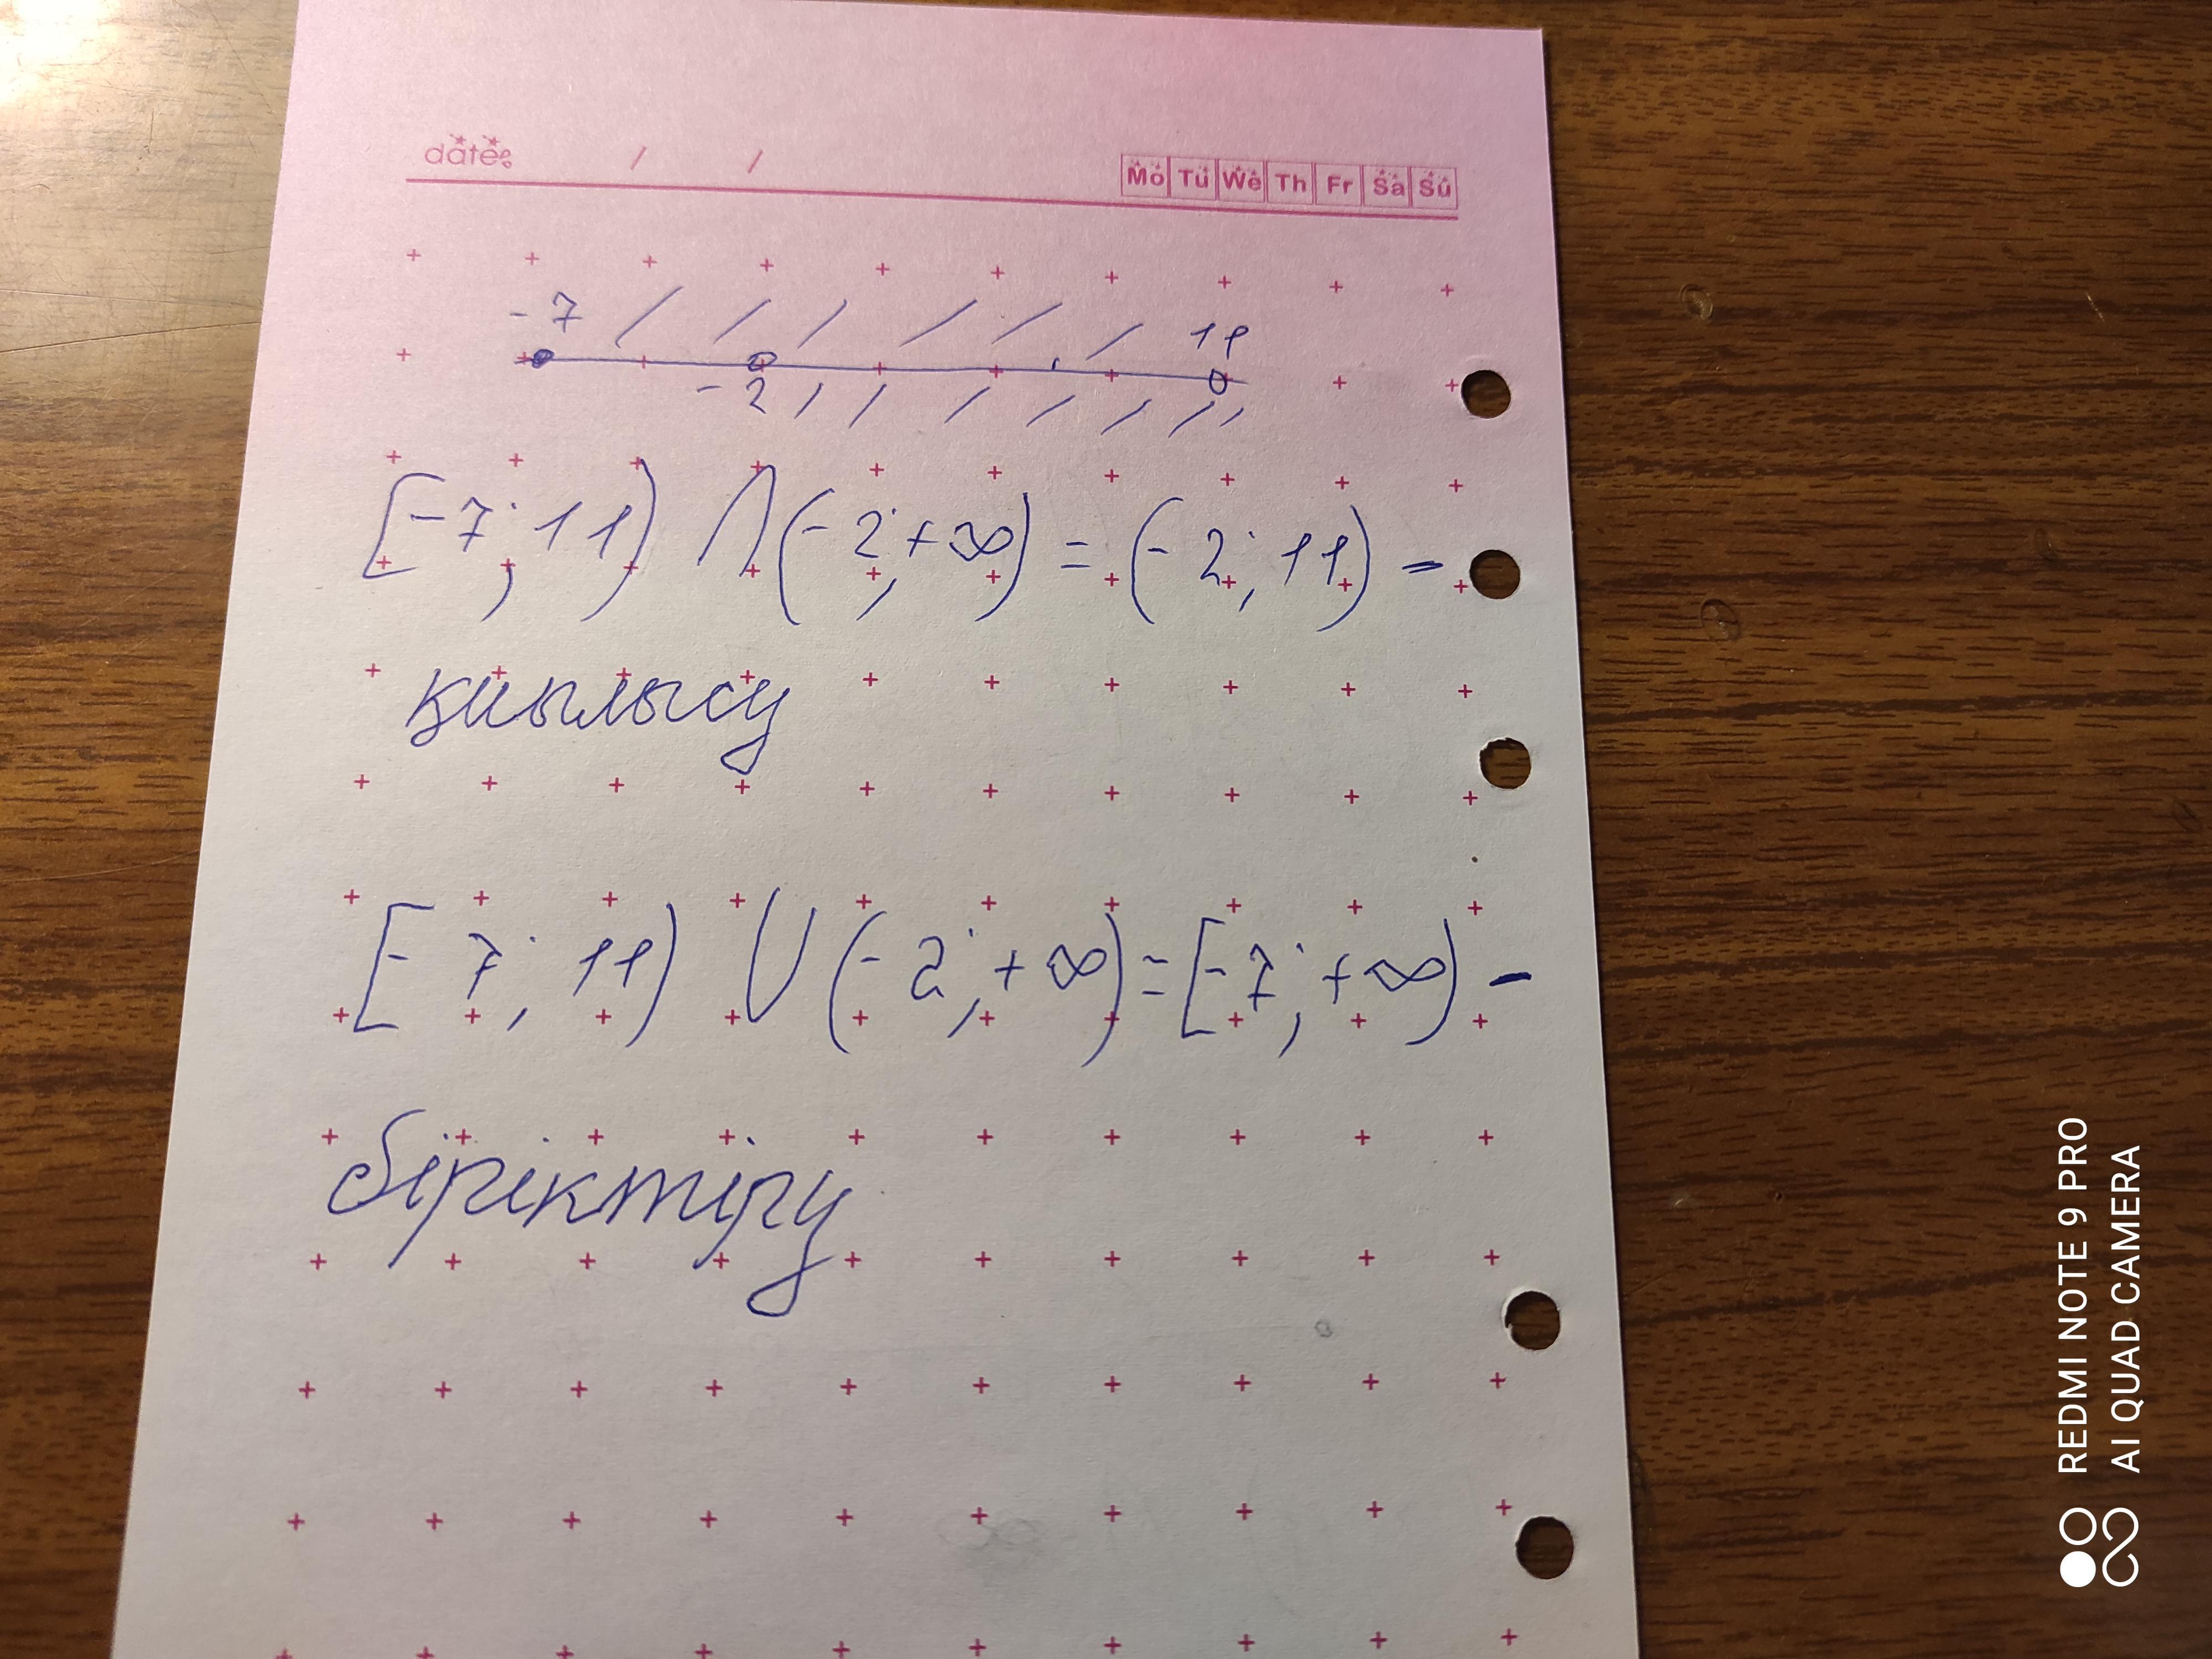 date: / /
Mo Tu We Th Fr Sa Su
-7 11
-2
[-7; 11) ∩ (-2; +∞) = (-2; 11) -
қиылысу
[-7; 11) ∪ (-2; +∞) = [-7; +∞) -
біріктіру
REDMI NOTE 9 PRO
AI QUAD CAMERA